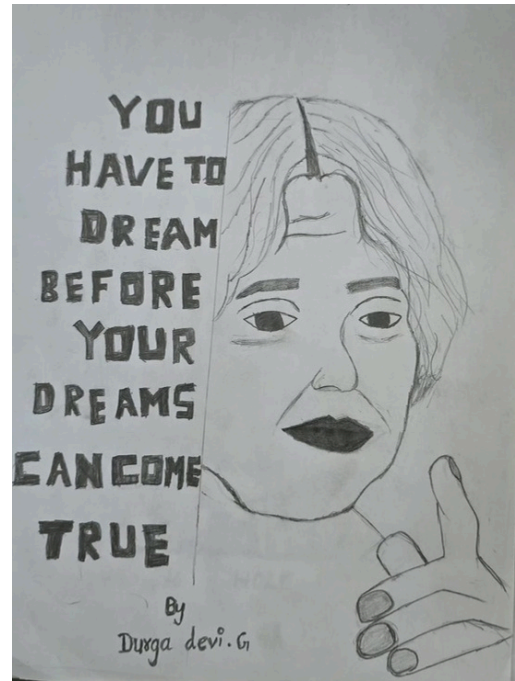 YOU
HAVE TO
DREAM
BEFORE
YOUR
DREAMS
CAN COME
TRUE
By
Durga devi.G